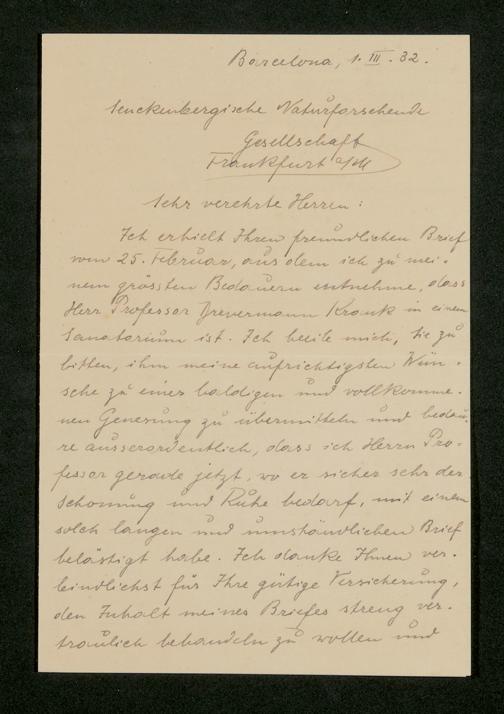 Barcelona, 1. III. 32.
Senckenbergische Naturforschende
Gesellschaft
Frankfurt a/M
Sehr verehrte Herren:
Ich erhielt Ihren freundlichen Brief
vom 25. Februar, aus dem ich zu mei-
nem grössten Bedauern entnehme, dass
Herr Professor Drevermann Krank in einem
Sanatorium ist. Ich beeile mich, Sie zu
bitten, ihm meine aufrichtigsten Wün-
sche zu einer baldigen und vollkomme-
nen Genesung zu übermitteln und bedau-
re ausserordentlich, dass ich Herrn Pro-
fessor gerade jetzt, wo er sicher sehr der
Schonung und Ruhe bedarf, mit einem
solch langen und umständlichen Brief
belästigt habe. Ich danke Ihnen ver-
bindlichst für Ihre gütige Versicherung,
den Inhalt meines Briefes streng ver-
traulich behandeln zu wollen und